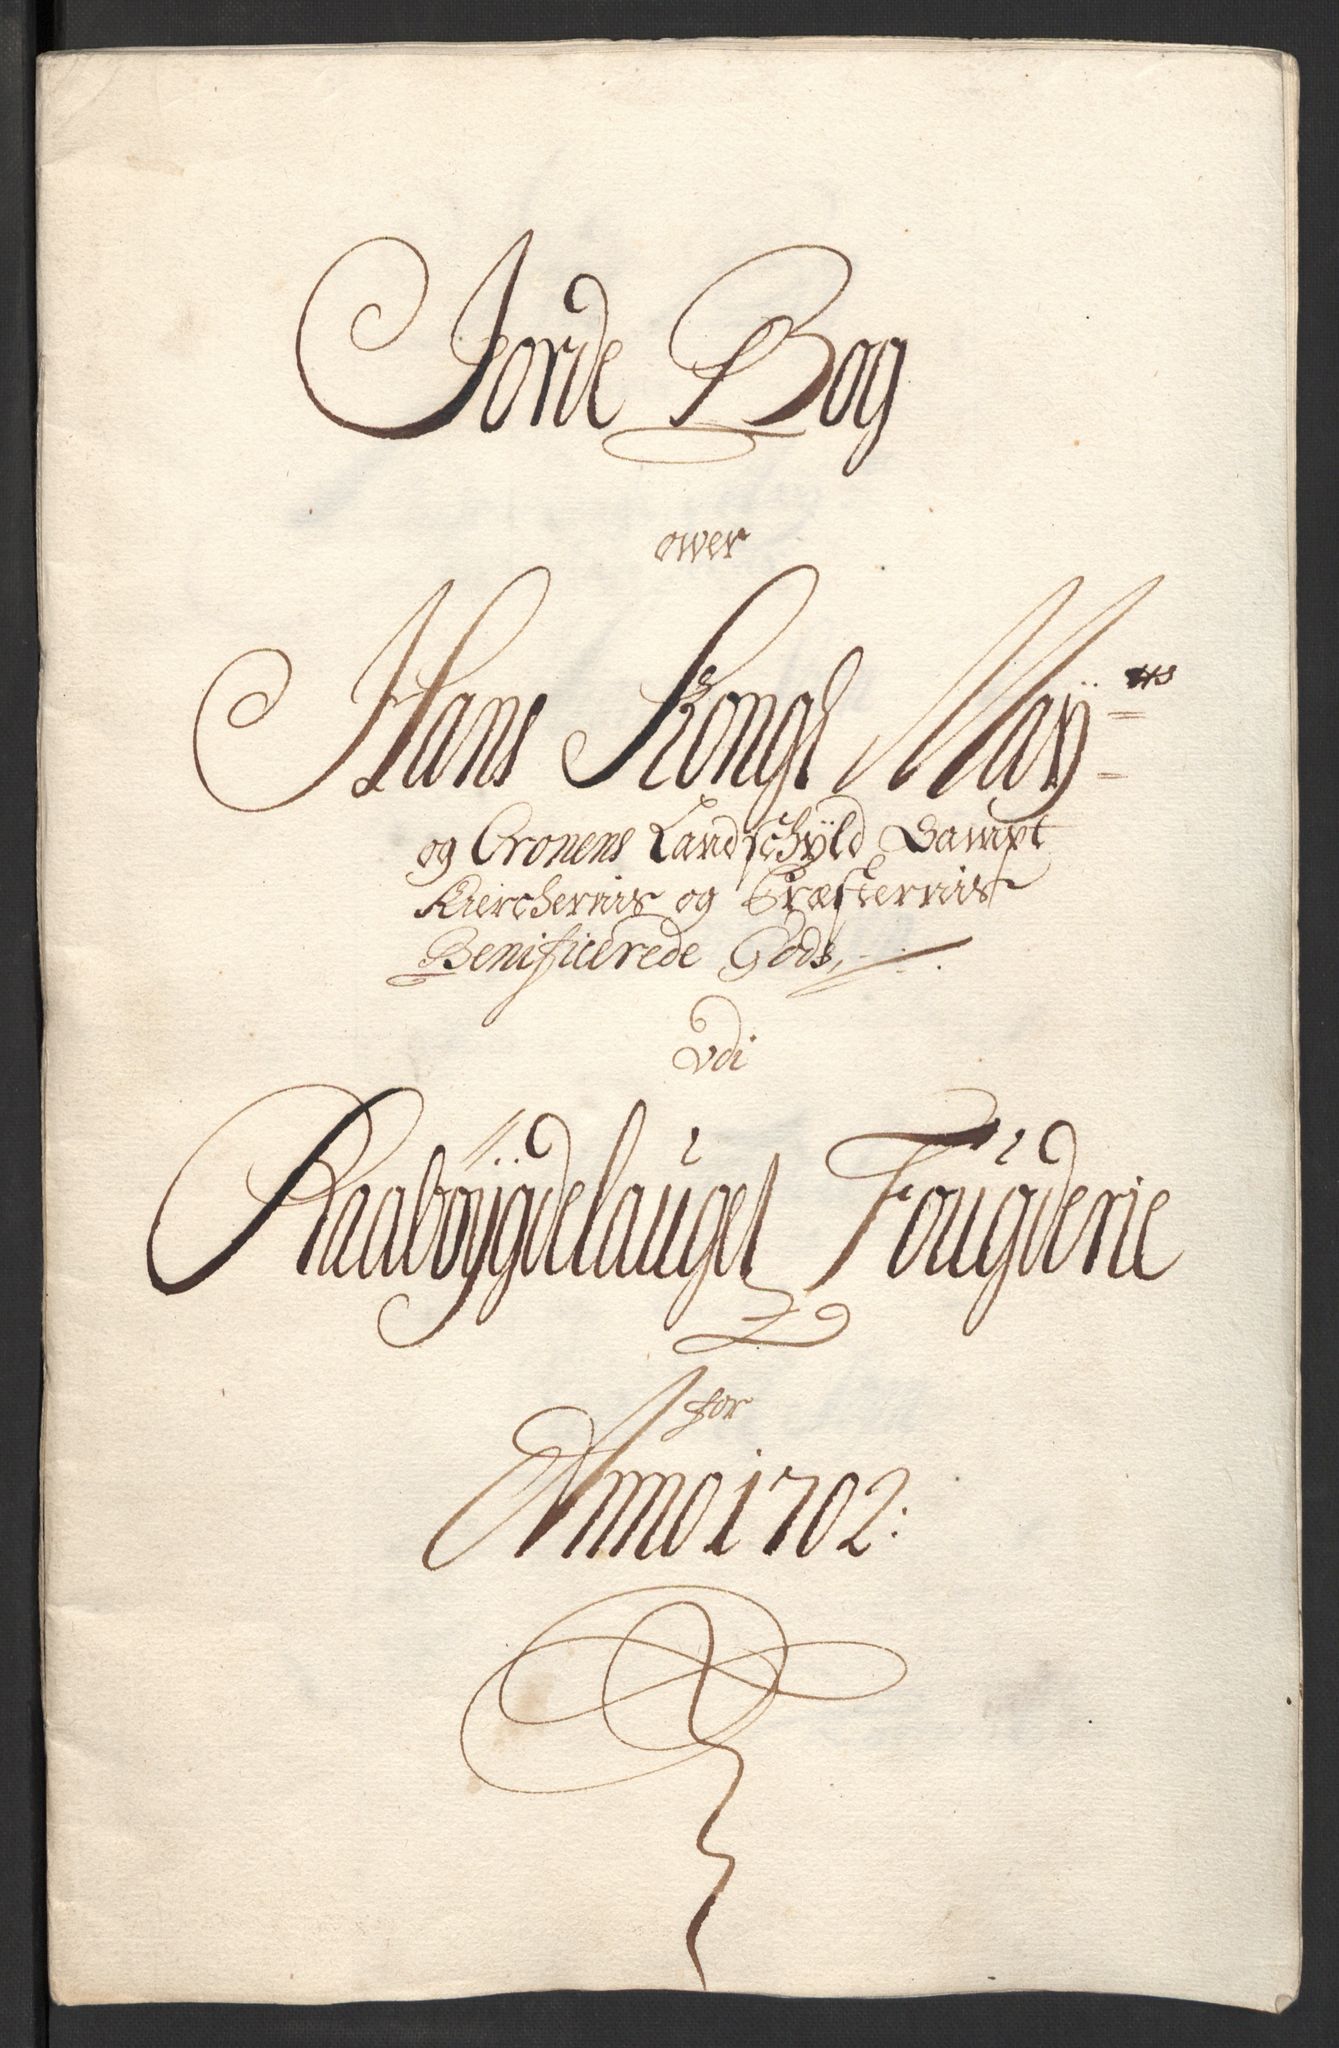 Jorde Bog
ower
Hans Kongl Maÿ:tts
og Cronens Landschÿld Sampt
Kierchernis og Præsternis
Benificerede Gods,
Vdi
Raabøÿgdelauget Fougderie
for
Anno 1702: